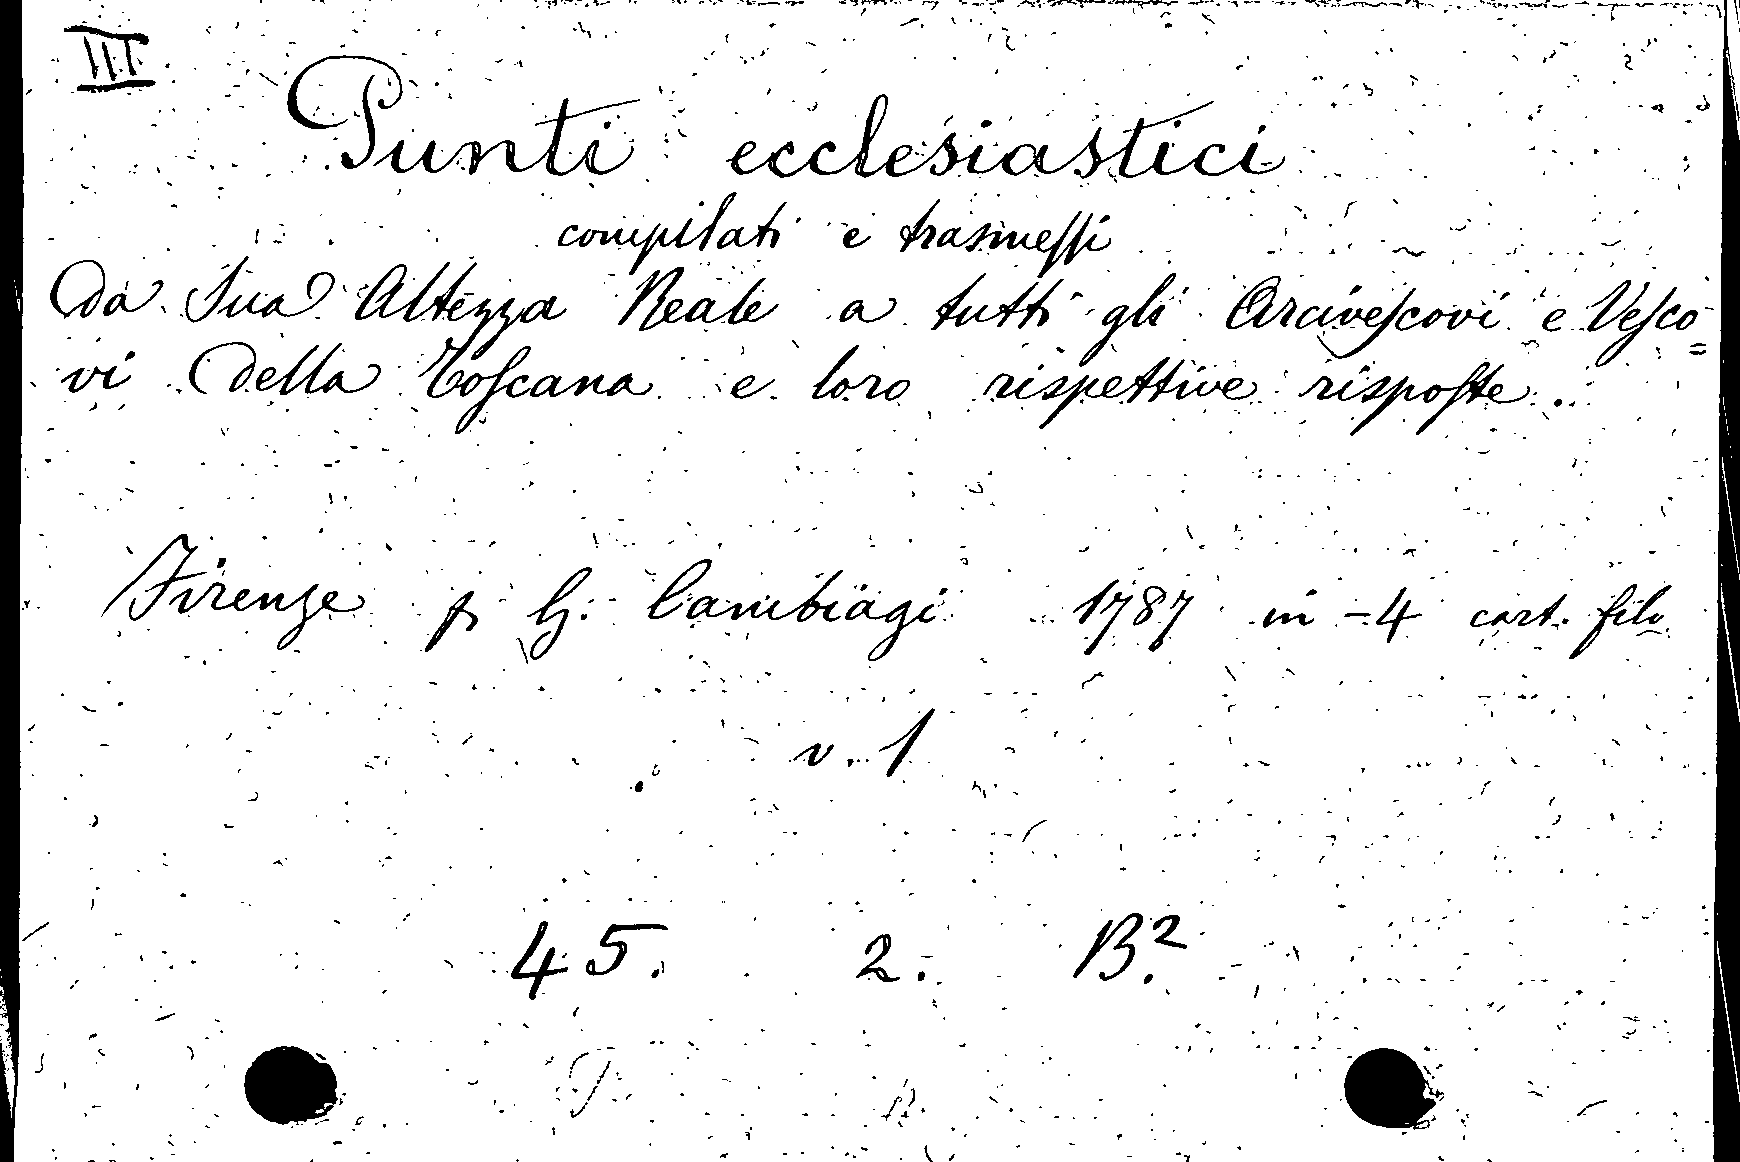 III
Punti ecclesiastici
compilati e trasmessi
Da Sua Altezza Reale a tutti gli Arcivescovi e Vesco=
vi Della Toscana e loro rispettive risposte.
Firenze p G. Cambiagi 1787 in-4 cart. filo
v. 1
45. 2. B.2